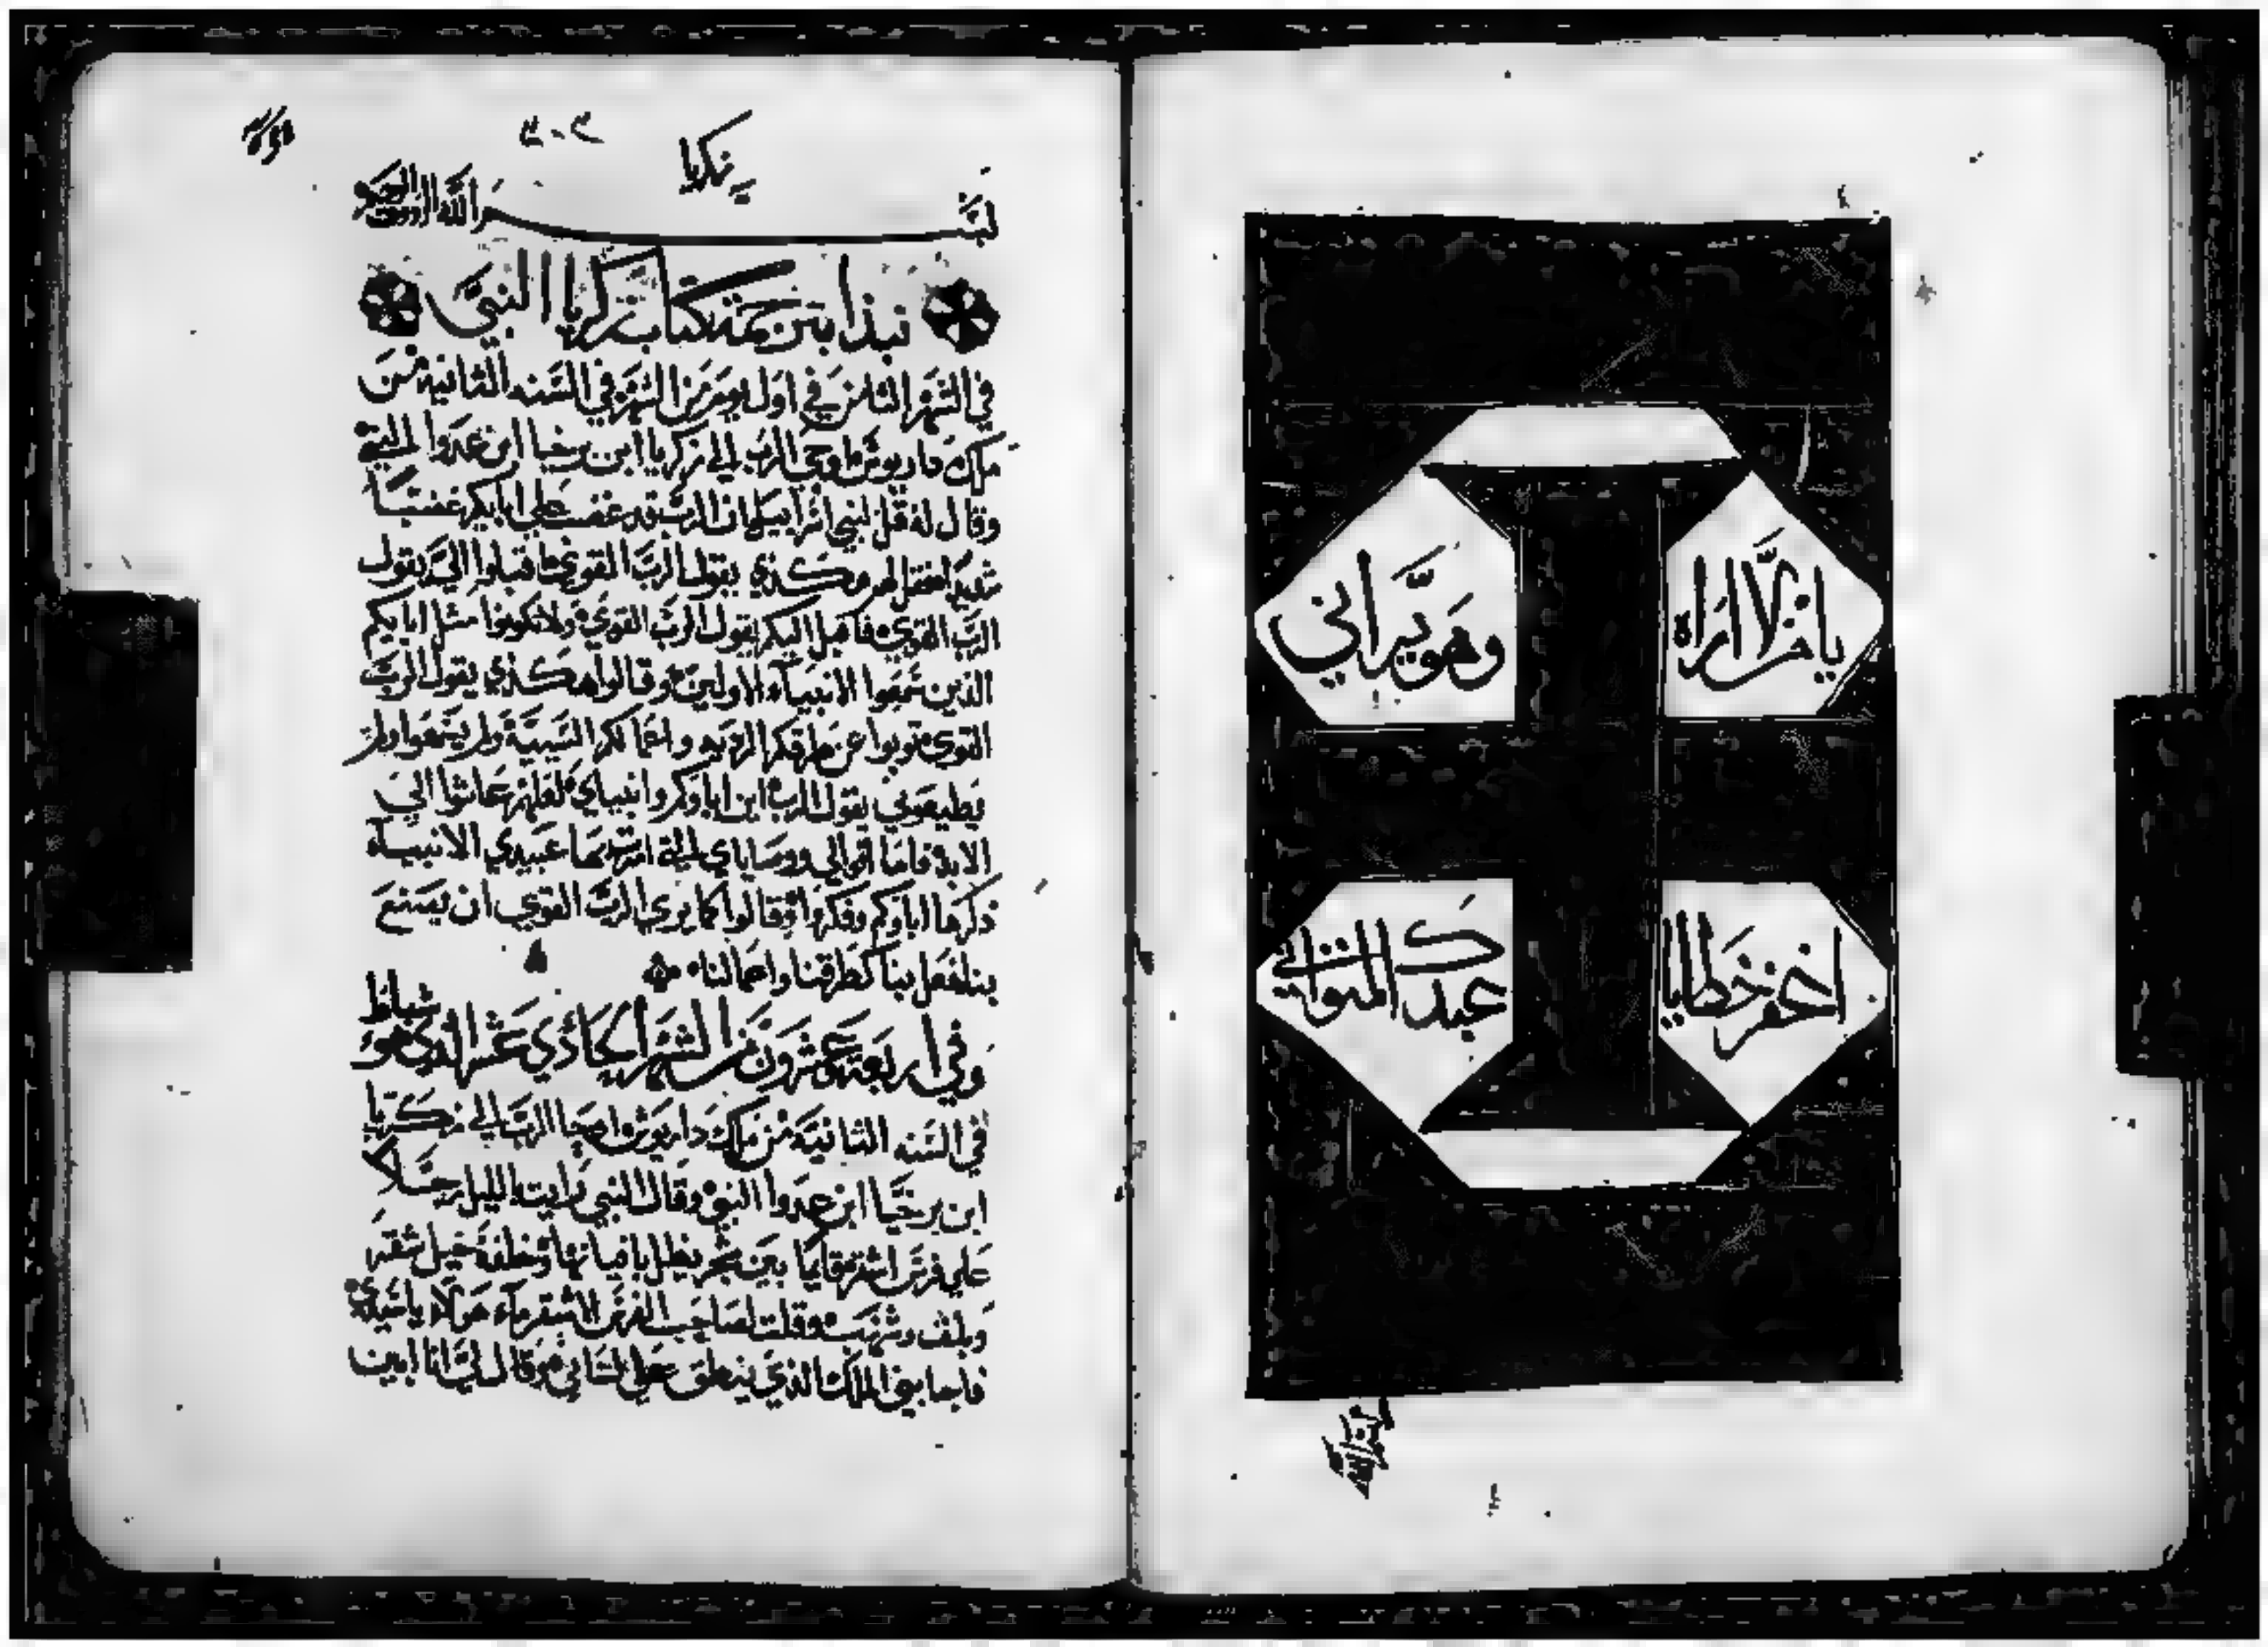 يا من لا اراه
وهو يراني
اغفر خطايا
عبدك المتواني
زكريا
بسم الله الرووف الرحيم
نبذا بترجمة كتاب زكريا النبي
في الشهر الثامن في اول يوم من الشهر في السنه الثانيه من
ملك داريوش اوحى الرب الي زكريا ابن برخيا ابن عدوا النبي
وقال له قل لبني اسراييل ان الرب قد غضب علي ابايكم غضبًا
شديدا فقل لهم هكذي يقول الرب القوي اقبلوا الي يقول
الرب القوي فاقبل اليكم يقول الرب القوي ولا تكونوا مثل ابايكم
الذين سمعوا الانبيآء الاولين وقالوا هكذي يقول الرب
القوي توبوا عن طرقكم الرديه واعمالكم السيية ولم يسمعوا ولم
يطيعوني يقول الرب اين اباوكم وانبياي لعلهم عاشوا الي
الابد فاما اقوالي ووصاياي التي امرت بها عبيدي الانبيآء
ذكرها اباوكم وفكروا وقالوا كما يري الرب القوي ان يصنع
بنا فعل بنا كطرقنا واعمالنا
وفي اربعة وعشرون من الشهر الحادي عشر الذي هو شباط
في السنه الثانية من ملك داريوش اوحيا الرب الي زكريا
ابن برخيا ابن عدوا النبي وقال النبي رايت الليل رجلًا
علي فرس اشقر قايمًا بين شجر يظل بافيانها وخلفة خيل شقر
وبلق وشهب وقلت لصاحب الفرس الاشقر مآ هولا يا سيدي
فاجابني الملاك الذي ينطق علي لساني وقال لي انا ابين